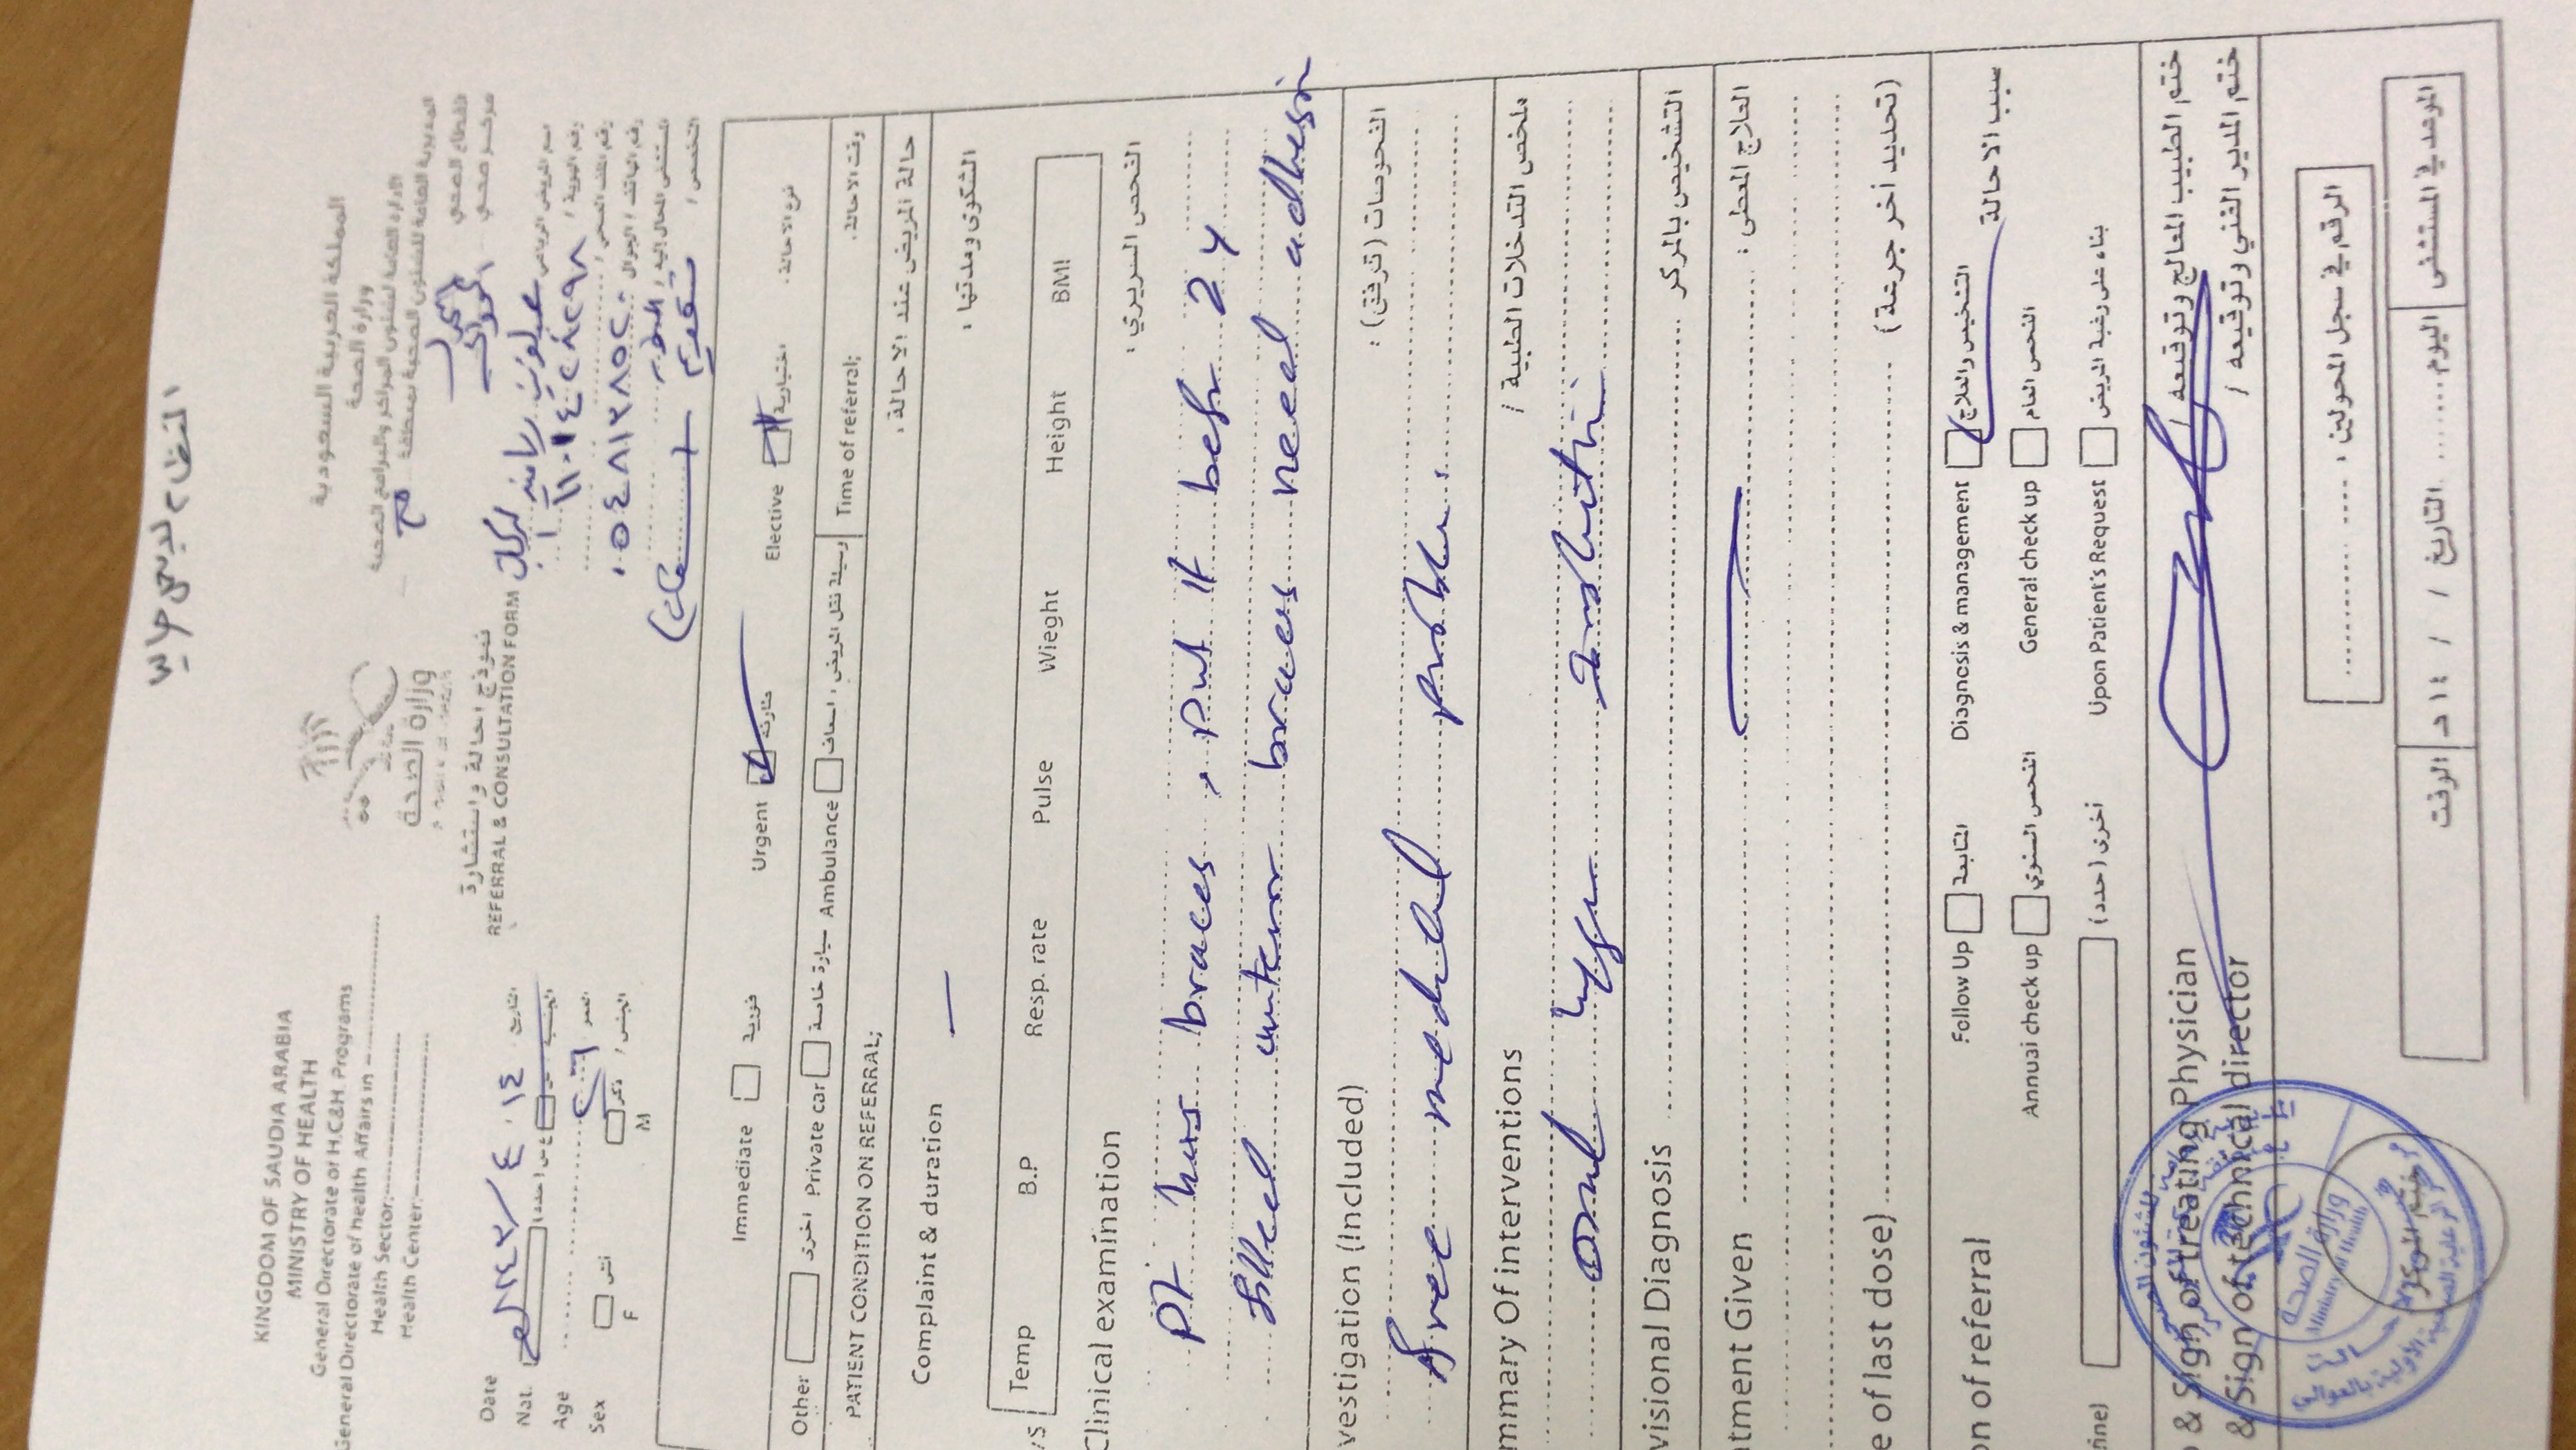 النظام لا يعمل حاليا
KINGDOM OF SAUDIA ARABIA
MINISTRY OF HEALTH
General Directorate of H.C&H. Programs
General Directorate of health Affairs in
Health Sector:
Health Center:
وزارة الصحة
نموذج احالة واستشارة
REFERRAL & CONSULTATION FORM
المملكة العربية السعودية
وزارة الصحة
الادارة العامة لشئون المراكز والبرامج الصحية
المديرية العامة للشئون الصحية بمنطقة
القطاع الصحي
مركز صحي العوالي
Date ١٤٤٣/٤/١٤ التاريخ
Nat. الجنسية س غ س (حدد)
Age ٢٦ العمر
Sex أنثى ذكر الجنس /
F M
اسم المريض الرباعي
رقم الهوية /
رقم الملف الصحي /
رقم الهاتف / الجوال ٠٥٤٨١٣٨٥٢٠
المستشفى المحال إليه /
التخصص / تقويم
Immediate فورية Urgent Elective اختيارية نوع الاحالة.
Other اخرى Private car سيارة خاصة Ambulance وسيلة نقل المريض ، اسعاف Time of referral; وقت الاحالة.
PATIENT CONDITION ON REFERRAL; حالة المريض عند الاحالة ،
Complaint & duration — الشكوى ومدتها ،
/S Temp B.P Resp. rate Pulse Wieght Height BMI
Clinical examination الفحص السريري :
pt has braces , put it befr 2 y
braces need adhesin
vestigation (Included) الفحوصات (ترفق) :
free medical proble.
mmary Of interventions ملخص التدخلات الطبية /
oral
visional Diagnosis التشخيص بالمركز
atment Given العلاج المعطى :
e of last dose) (تحديد أخر جرعة)
on of referral Follow Up المتابعة Diagnosis & management التشخيص والعلاج سبب الاحالة
Annual check up الفحص السنوي General check up الفحص العام
fine) أخرى (حدد) Upon Patient's Request بناء على رغبة المريض
& Sign of treating Physician ختم الطبيب المعالج وتوقيعه /
& Sign of technical director ختم المدير الفني وتوقيعه /
وزارة الصحة
Ministry of Health
ختم المركز
الرقم في سجل المحولين :
الموعد في المستشفى اليوم التاريخ / / ١٤ هـ الوقت